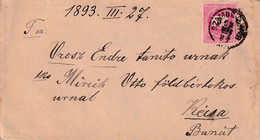 1893. III. 27.
T. cz.
Orosz Endre tanitó urnak
Otto földbirtokos
urnál
Récsa
Bánát